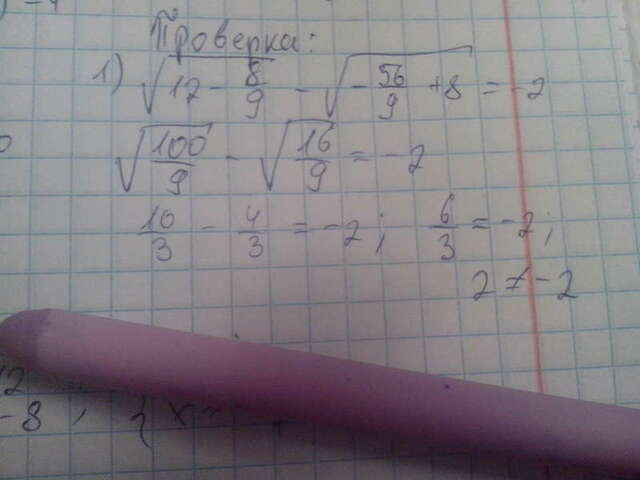 ) -4
Проверка:
1) √(12 - 8/9) - √(-56/9 + 8) = -2
√(100/9) - √(16/9) = -2
10/3 - 4/3 = -2; 6/3 = -2;
2 ≠ -2
12
-8 , { x